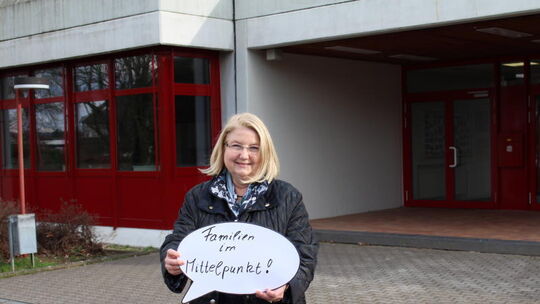 Familien
im
Mittelpunkt!